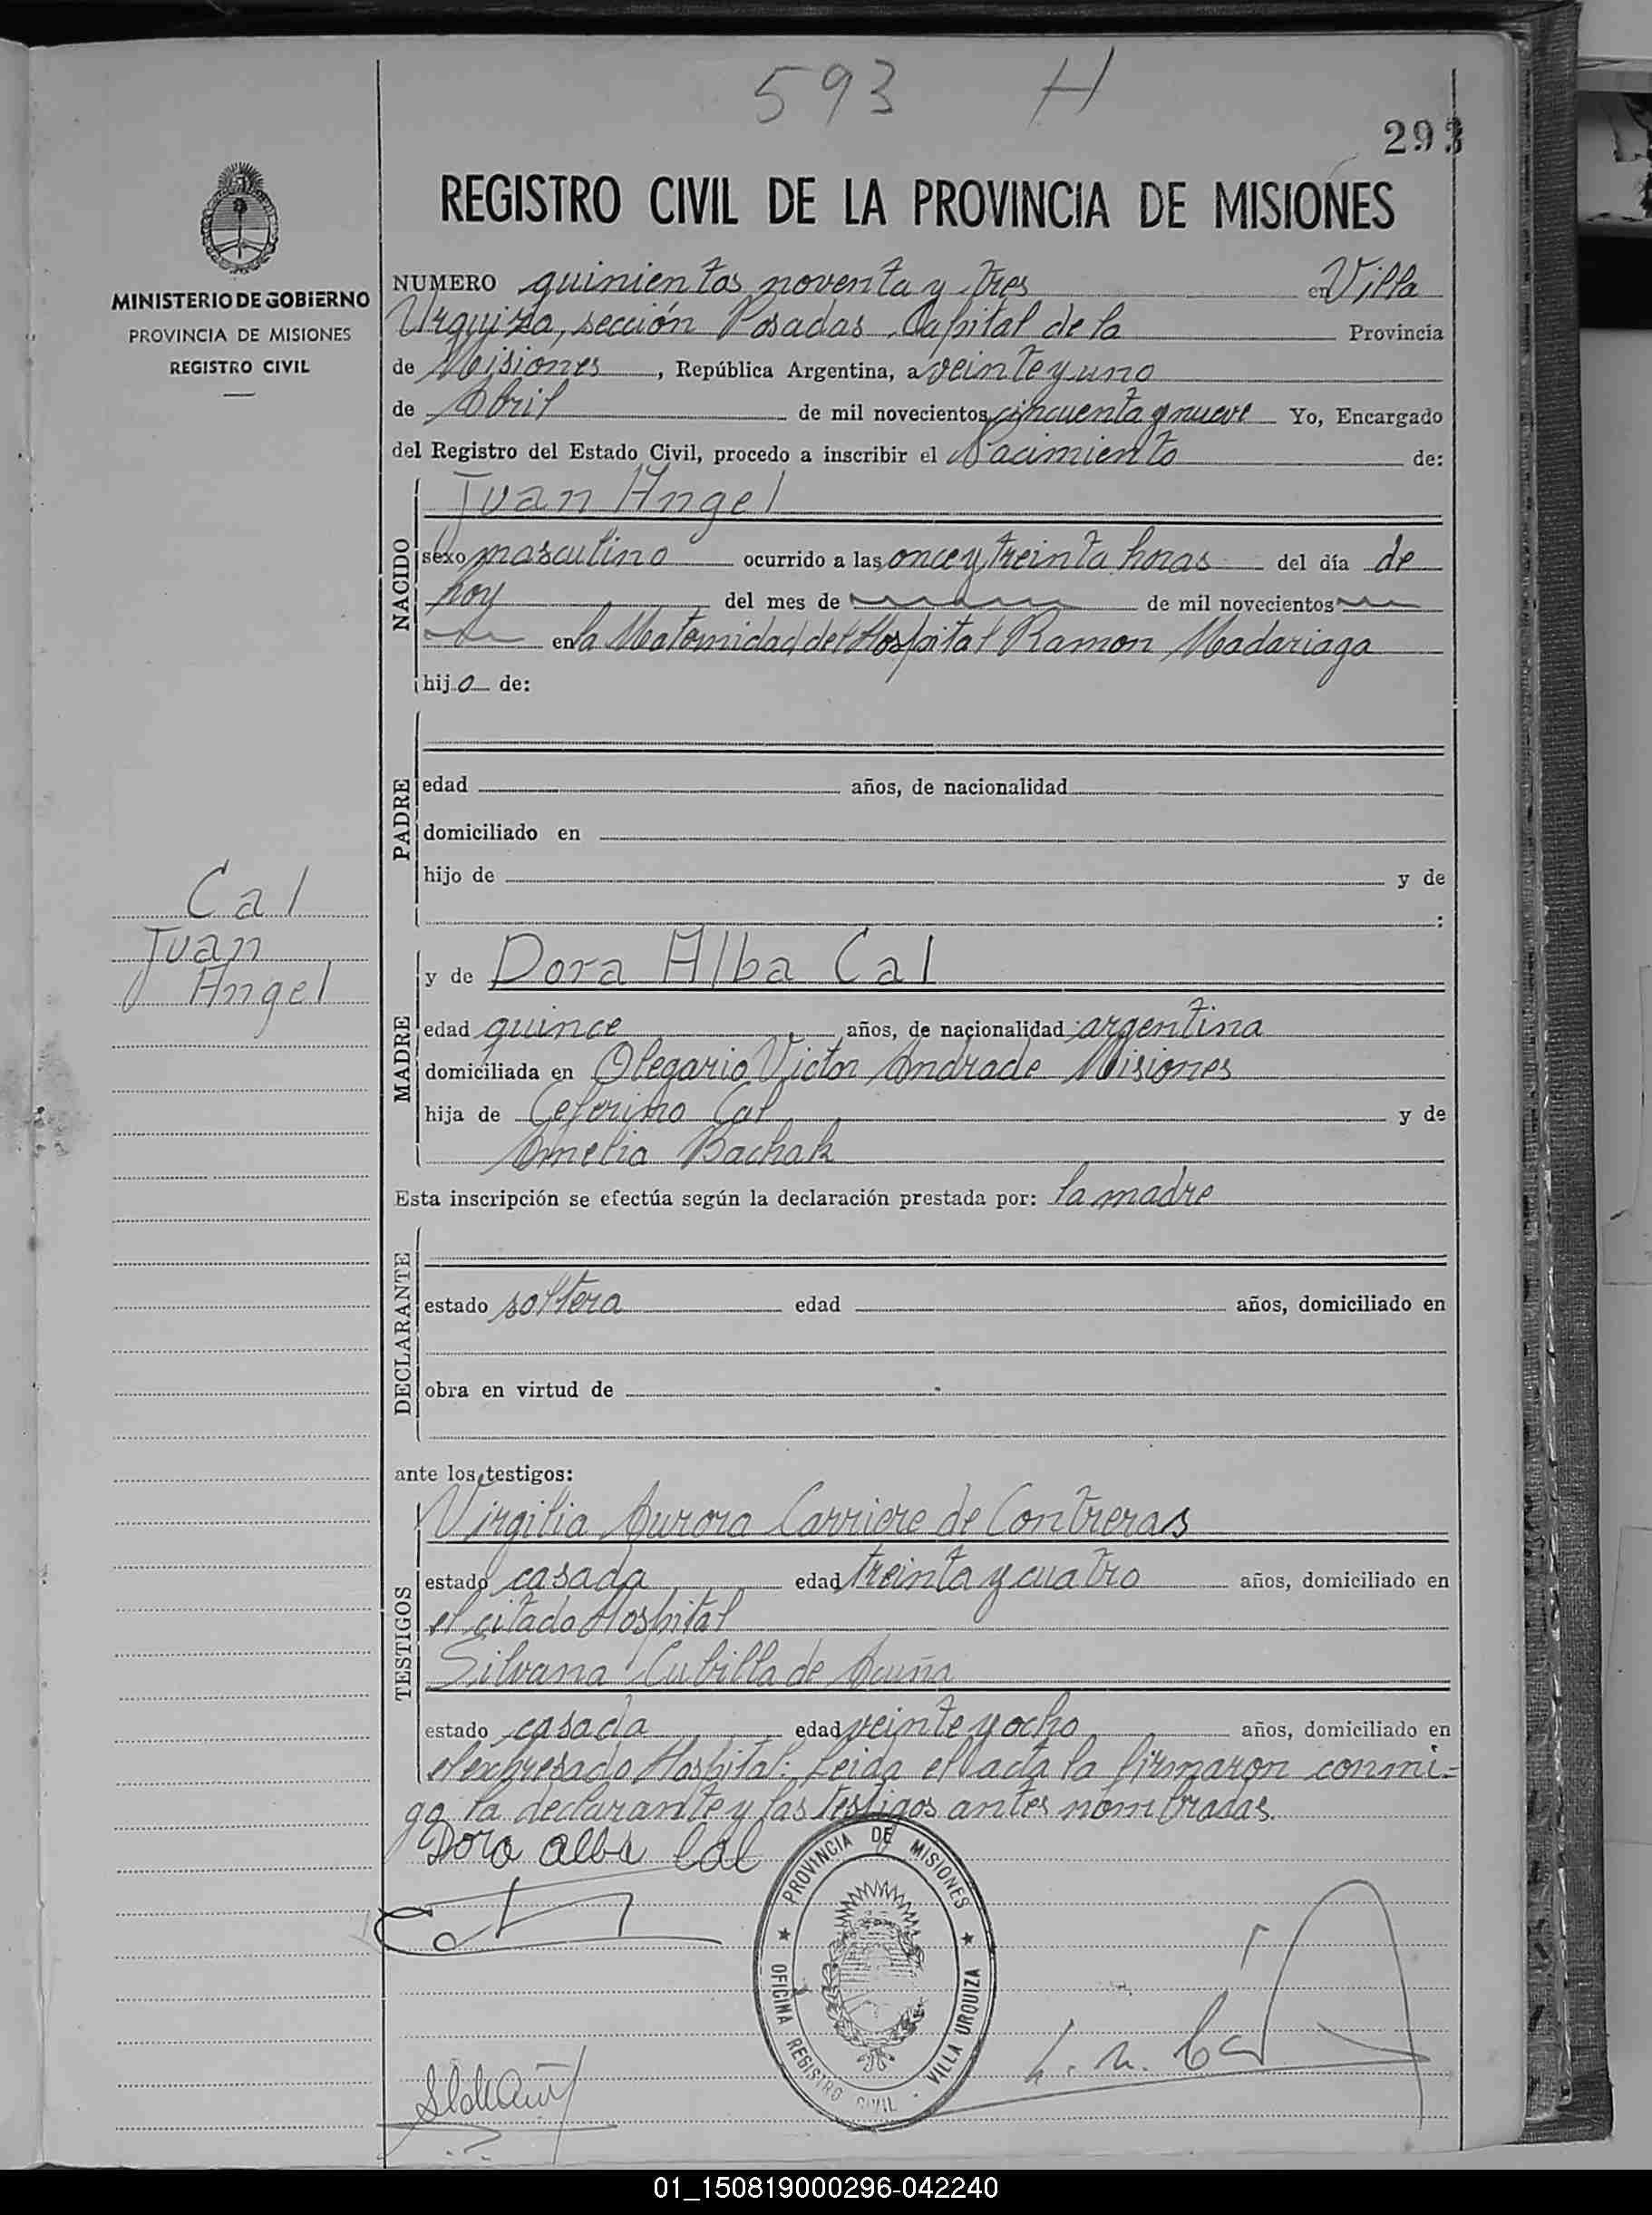 593 H
293
REGISTRO CIVIL DE LA PROVINCIA DE MISIONES
MINISTERIO DE GOBIERNO
PROVINCIA DE MISIONES
REGISTRO CIVIL
NUMERO quinientos noventa y tres en Villa
Urquiza, sección Posadas, Capital de la Provincia
de Misiones, República Argentina, a veinte y uno
de Abril de mil novecientos cincuenta y nueve Yo, Encargado
del Registro del Estado Civil, procedo a inscribir el Nacimiento de:
NACIDO
Juan Angel
sexo masculino ocurrido a las once y treinta horas del día de
hoy del mes de de mil novecientos
en la Maternidad del Hospital Ramon Madariaga
hijo de:
PADRE
edad años, de nacionalidad
domiciliado en
hijo de y de
:
Cal
Juan
Angel
MADRE
y de Dora Alba Cal
edad quince años, de nacionalidad argentina
domiciliada en Olegario Victor Andrade Misiones
hija de Ceferino Cal y de
Amelia Bachak
Esta inscripción se efectúa según la declaración prestada por: la madre
DECLARANTE
estado soltera edad años, domiciliado en
obra en virtud de
ante los testigos:
TESTIGOS
Virgilia Aurora Carriere de Contreras
estado casada edad treinta y cuatro años, domiciliado en
el citado Hospital
Silvana Cubilla de Acuña
estado casada edad veinte y ocho años, domiciliado en
el expresado Hospital: Leida el acta la firmaron conmi-
go la declarante y las testigos antes nombradas.
Dora alba Cal
PROVINCIA DE MISIONES
OFICINA REGISTRO CIVIL - VILLA URQUIZA
01_150819000296-042240